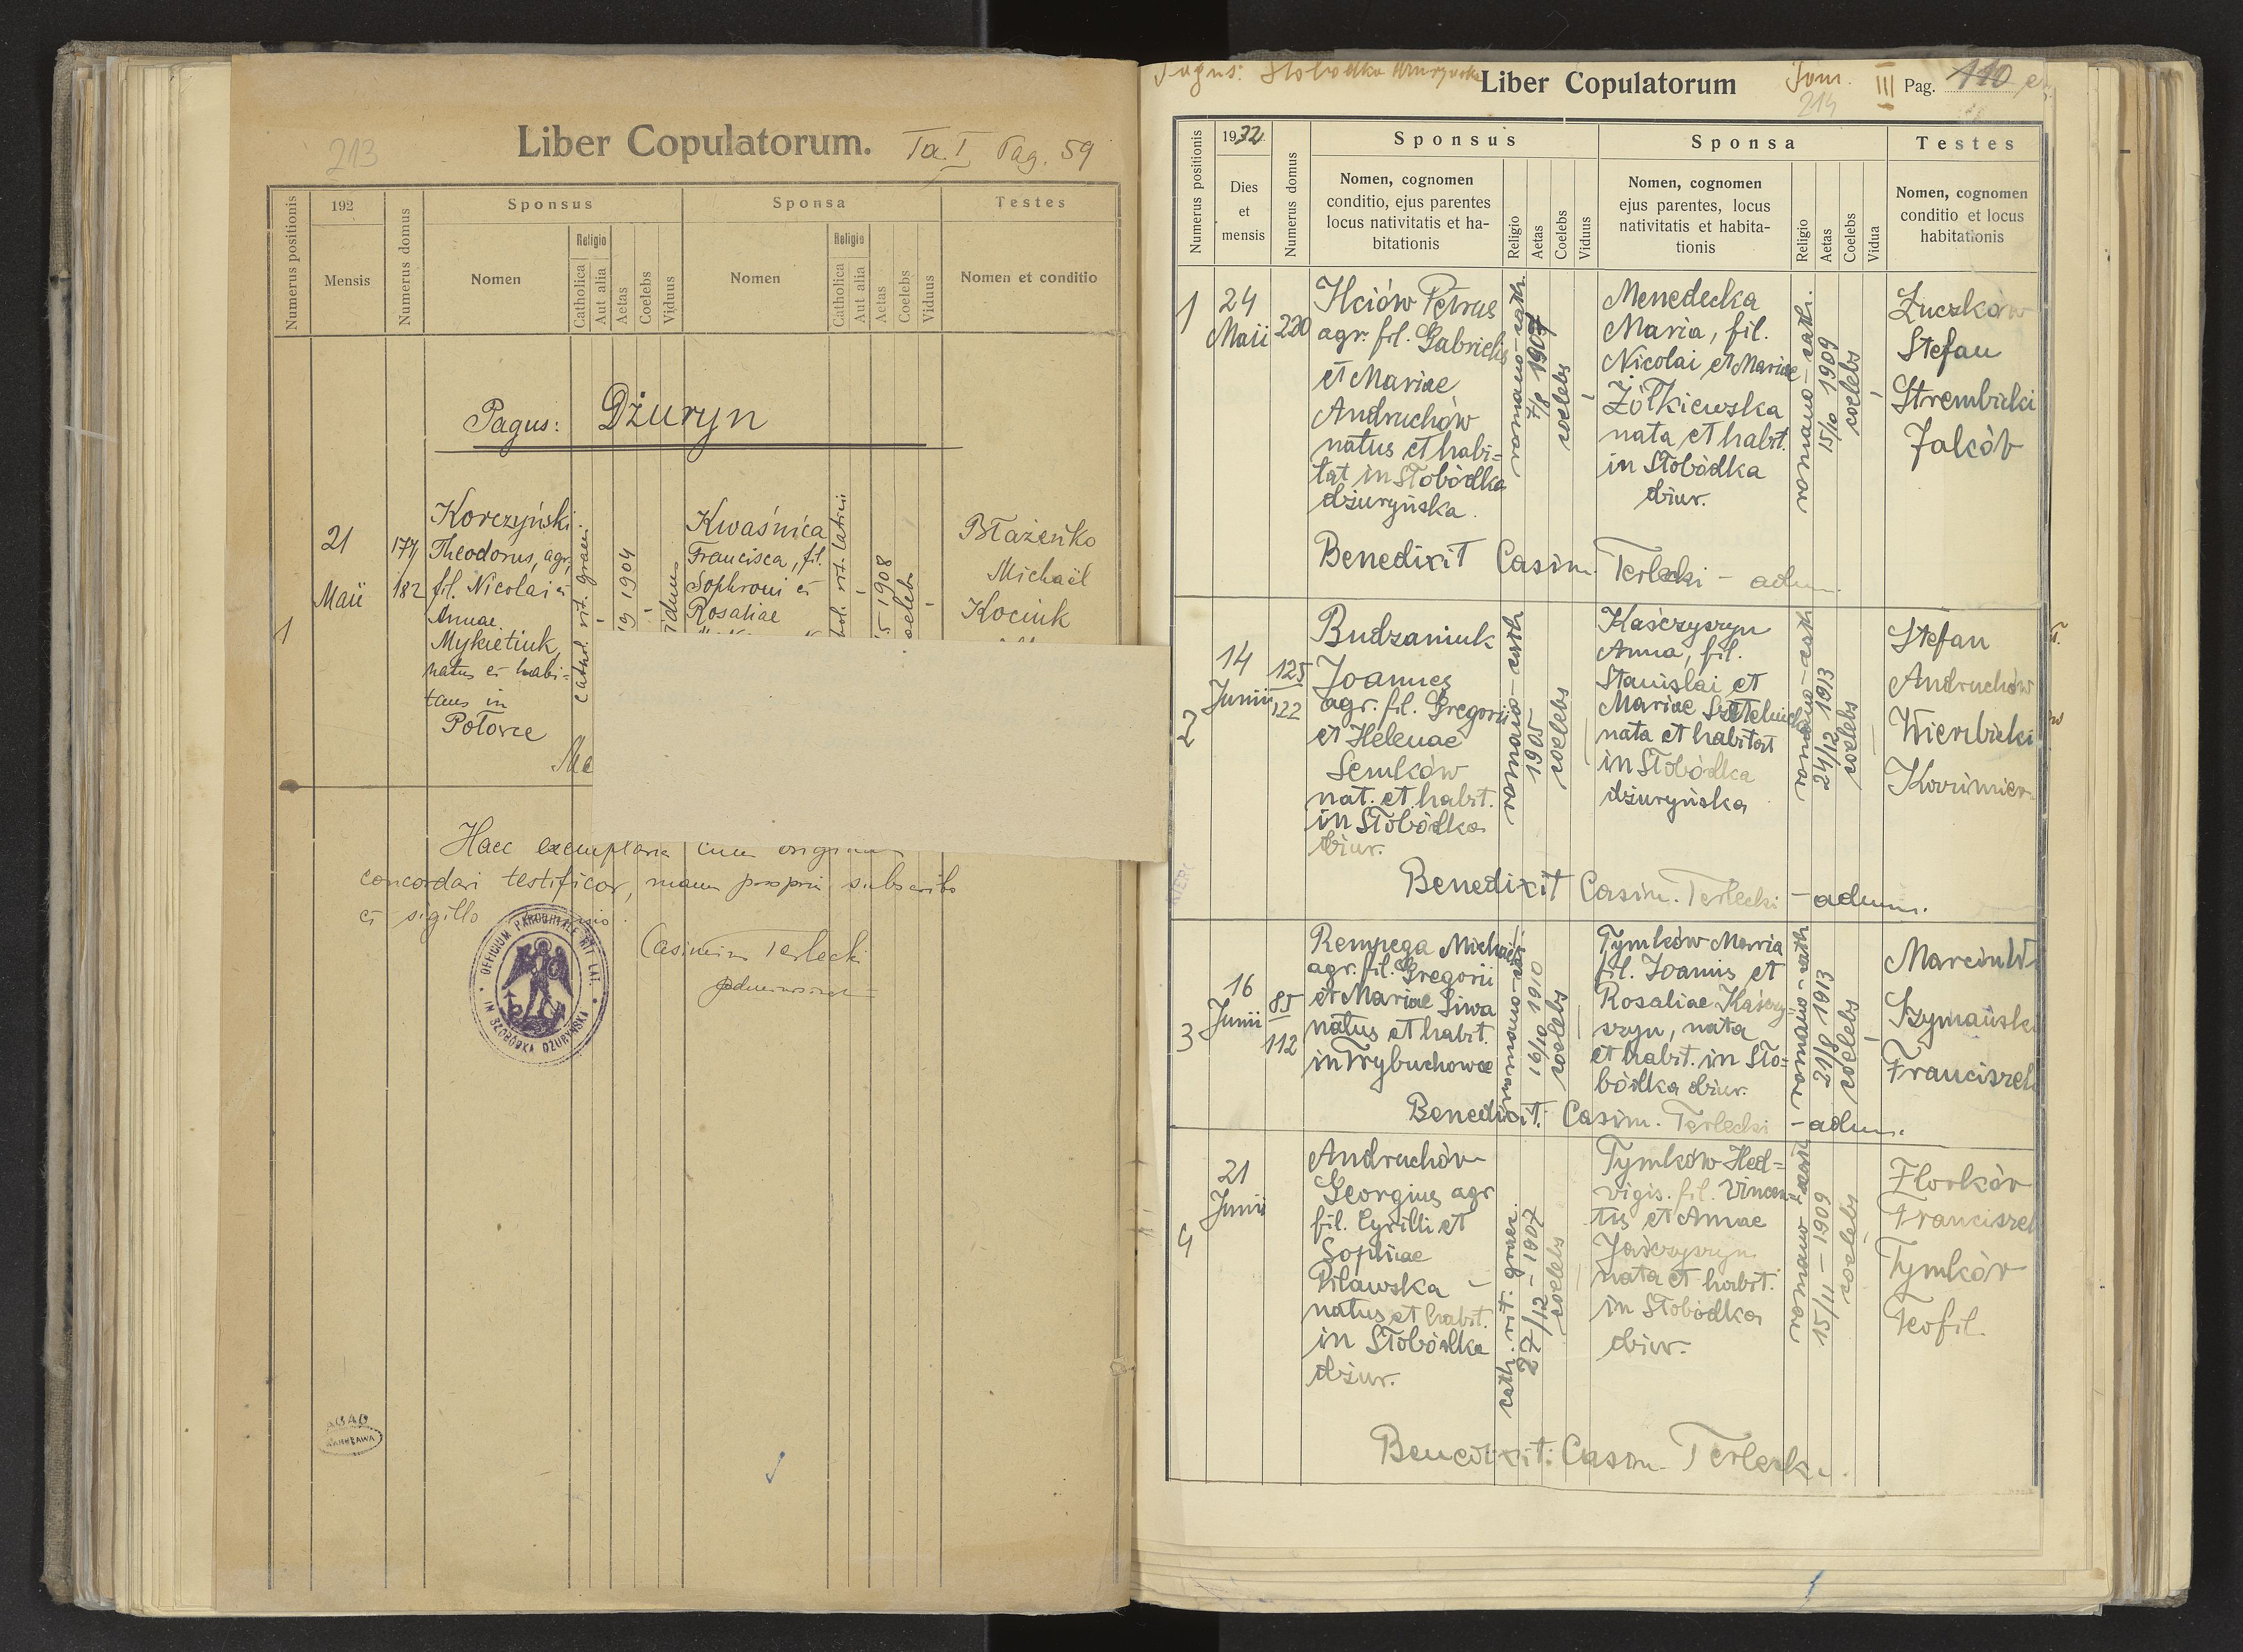 213
Liber Copulatorum.
To. I Pag. 59
Numerus positionis
192
Mensis
Numerus domus
Sponsus
Nomen
Religio
Catholica
Aut alia
Aetas
Coelebs
Viduus
Sponsa
Nomen
Religio
Catholica
Aut alia
Aetas
Coelebs
Viduus
Testes
Nomen et conditio
Pagus: Dżuryn
1
21
Maii
177
182
Korczyński
Theodorus, agr.,
fil. Nicolai et
Annae
Mykietiuk,
natus et habi=
tans in
Połowce
cathol. rit. graec.
1904
Kwaśnica
Francisca, fil.
Sophroni et
Rosaliae
rit. latini
1908
coelebs
Błażeńko
Michaël
Kociuk
Haec exemplaria cum
concordari testificor, manu propria subscribo
et sigillo
Casimirus Terlecki
OFFICIUM PAROCHIALE RIT. LAT.
IN SŁOBÓDKA DŻURYŃSKA
AGAD
WARSZAWA
Pagus: Słobódka dżuryńska
Liber Copulatorum
Tom. III Pag. 110
214
Numerus positionis
1932
Dies
et
mensis
Numerus domus
Sponsus
Nomen, cognomen
conditio, ejus parentes
locus nativitatis et ha-
bitationis
Religio
Aetas
Coelebs
Viduus
Sponsa
Nomen, cognomen
ejus parentes, locus
nativitatis et habita-
tionis
Religio
Aetas
Coelebs
Vidua
Testes
Nomen, cognomen
conditio et locus
habitationis
1
24
Maii
220
Ilciów Petrus
agr. fil. Gabrielis
et Mariae
Andruchów
natus et habi=
tat in Słobódka
dżuryńska.
romano-cath.
7/8 1907
coelebs
Menedecka
Maria, fil.
Nicolai et Mariae
Żółkiewska
nata et habit.
in Słobódka
dżur.
romano-cath.
15/10 1909
coelebs
Łuczków
Stefan
Strembicki
Jakób
Benedixit Casim. Terlecki - adm.
2
14
Junii
125
122
Budzaniuk
Joannes
agr. fil. Gregorii
et Helenae
Semków
nat. et habit.
in Słobódka
dżur.
romano-cath
1905
coelebs
Kaśczyszyn
Anna, fil.
Stanislai et
Mariae
nata et habitat
in Słobódka
dżuryńska
romano-cath
24/12 1913
coelebs
Stefan
Andruchów
Wierzbicki
Benedixit Casim. Terlecki - adm.
3
16
Junii
85
112
Rempega Michael
agr. fil. Gregorii
et Mariae Siwa
natus et habit.
in Trybuchowce
romano-cath.
16/10 1910
coelebs
Tymków Maria
fil. Joannis et
Rosaliae Kaśczy=
szyn, nata
et habit. in Sło=
bódka dżur.
romano-cath
21/8 1913
coelebs
Marcin W
Szymański
Franciszek
Benedixit. Casim. Terlecki - adm.
4
21
Junii
Andruchów
Georgius agr
fil. Cyrilli et
Sophiae
Pilawska -
natus et habit.
in Słobódka
dżur.
cath. rit. graec.
27/12 - 1907
coelebs
Tymków Hed=
vigis. fil. Vincen=
tis et Annae
Jaśczyszyn
nata et habit.
in Słobódka
dżur.
romano-cath
15/11 - 1909
coelebs
Florków
Franciszek
Tymków
Teofil.
Benedixit: Casim. Terlecki.